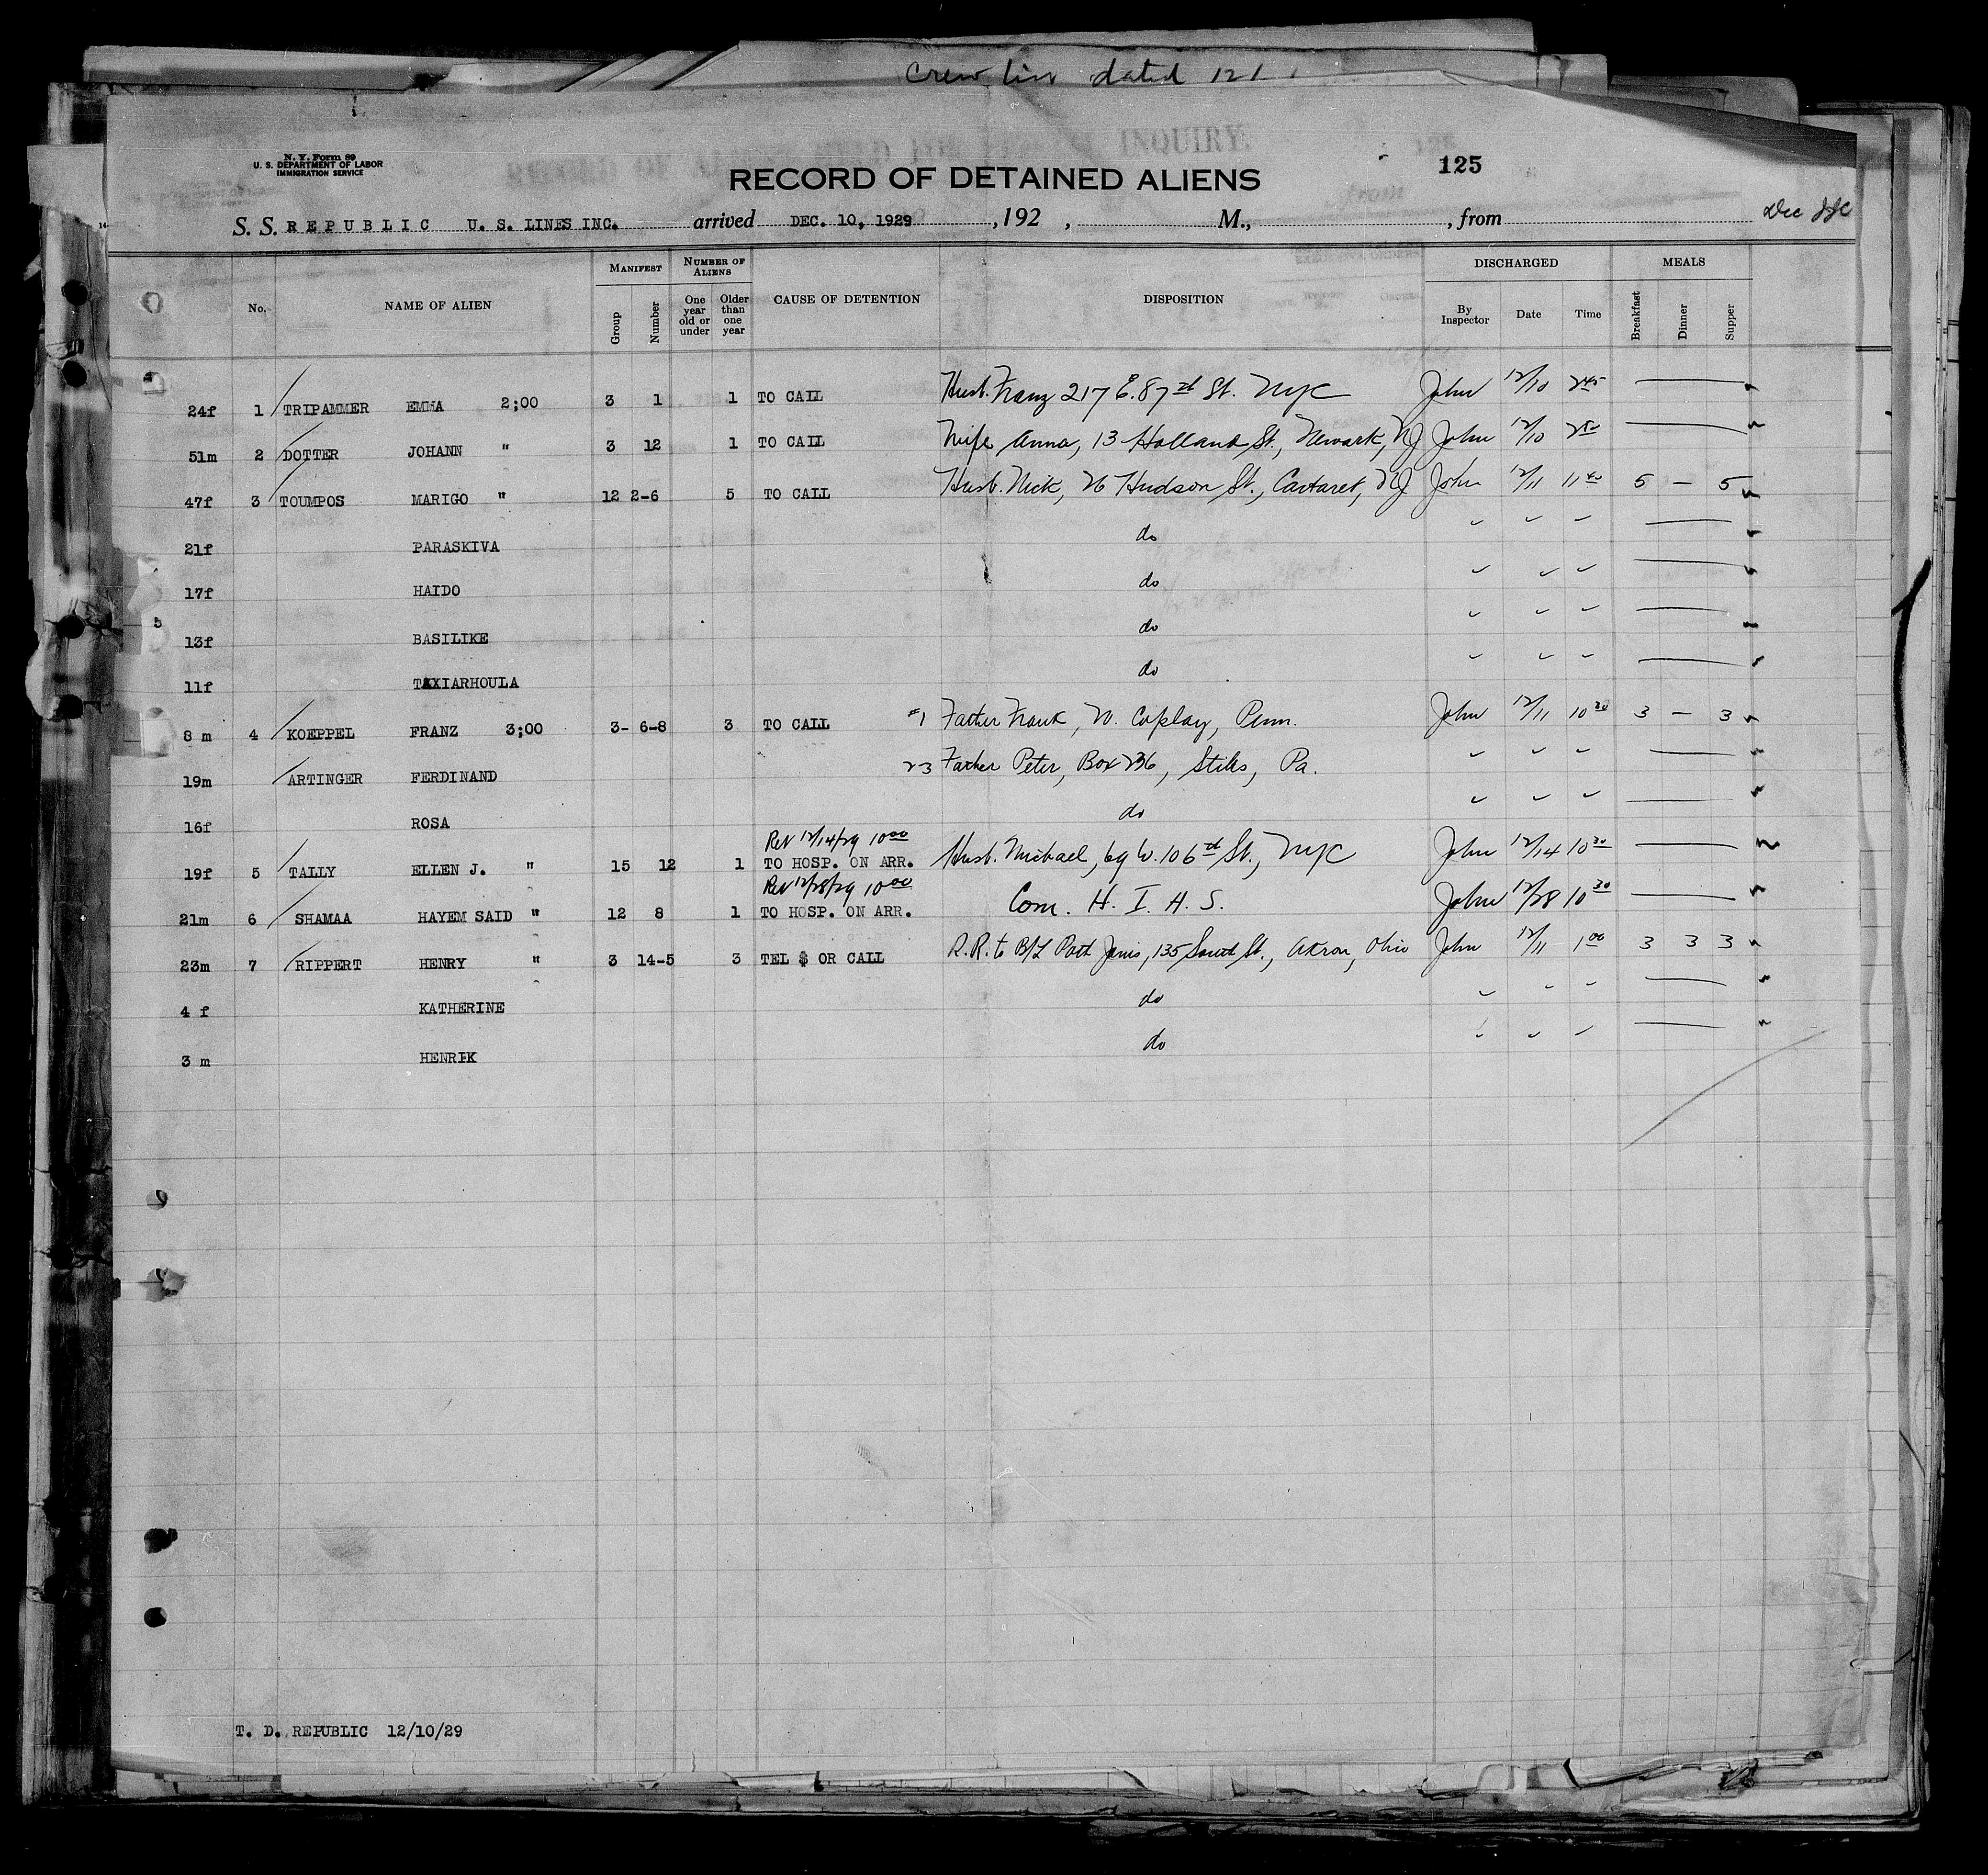 Crew list dated 12/
N. Y. Form 89
U. S. DEPARTMENT OF LABOR
IMMIGRATION SERVICE
RECORD OF DETAINED ALIENS
125
S. S. REPUBLIC U. S. LINES INC. arrived DEC. 10, 1929 , 192 , M., , from
Dec
No. NAME OF ALIEN MANIFEST Group Number NUMBER OF ALIENS One year old or under Older than one year CAUSE OF DETENTION DISPOSITION DISCHARGED By Inspector Date Time MEALS Breakfast Dinner Supper
24f 1 TRIPAMMER EMMA 2;00 3 1 1 TO CALL Husb. Franz 217 E. 87th St. NYC John 12/10 2 45
51m 2 DOTTER JOHANN " 3 12 1 TO CALL Wife Anna, 13 Holland St., Newark, NJ John 12/10 2 50
47f 3 TOUMPOS MARIGO " 12 2-6 5 TO CALL Husb. Nick, 26 Hudson St., Cartaret, NJ John 12/11 11 40 5 — 5
21f PARASKIVA do
17f HAIDO do
13f BASILIKE do
11f TAXIARHOULA do
8 m 4 KOEPPEL FRANZ 3;00 3- 6-8 3 TO CALL #1 Father Frank, W. Coplay, Penn. John 12/11 10 30 3 — 3
19m ARTINGER FERDINAND 23 Father Peter, Box 236, Stiles, Pa.
16f ROSA do
Rev 12/14/29 10 00
19f 5 TALLY ELLEN J. " 15 12 1 TO HOSP. ON ARR. Husb. Michael, 69 W. 106th St., NYC John 12/14 10 30
Rev 12/28/29 10 00
21m 6 SHAMAA HAYEM SAID " 12 8 1 TO HOSP. ON ARR. Com. H. I. A. S. John 12/28 10 30
23m 7 RIPPERT HENRY " 3 14-5 3 TEL $ OR CALL R.R. to B/L Path Janis, 135 South St., Akron, Ohio John 12/11 1 00 3 3 3
4 f KATHERINE do
3 m HENRIK do
T. D. REPUBLIC 12/10/29